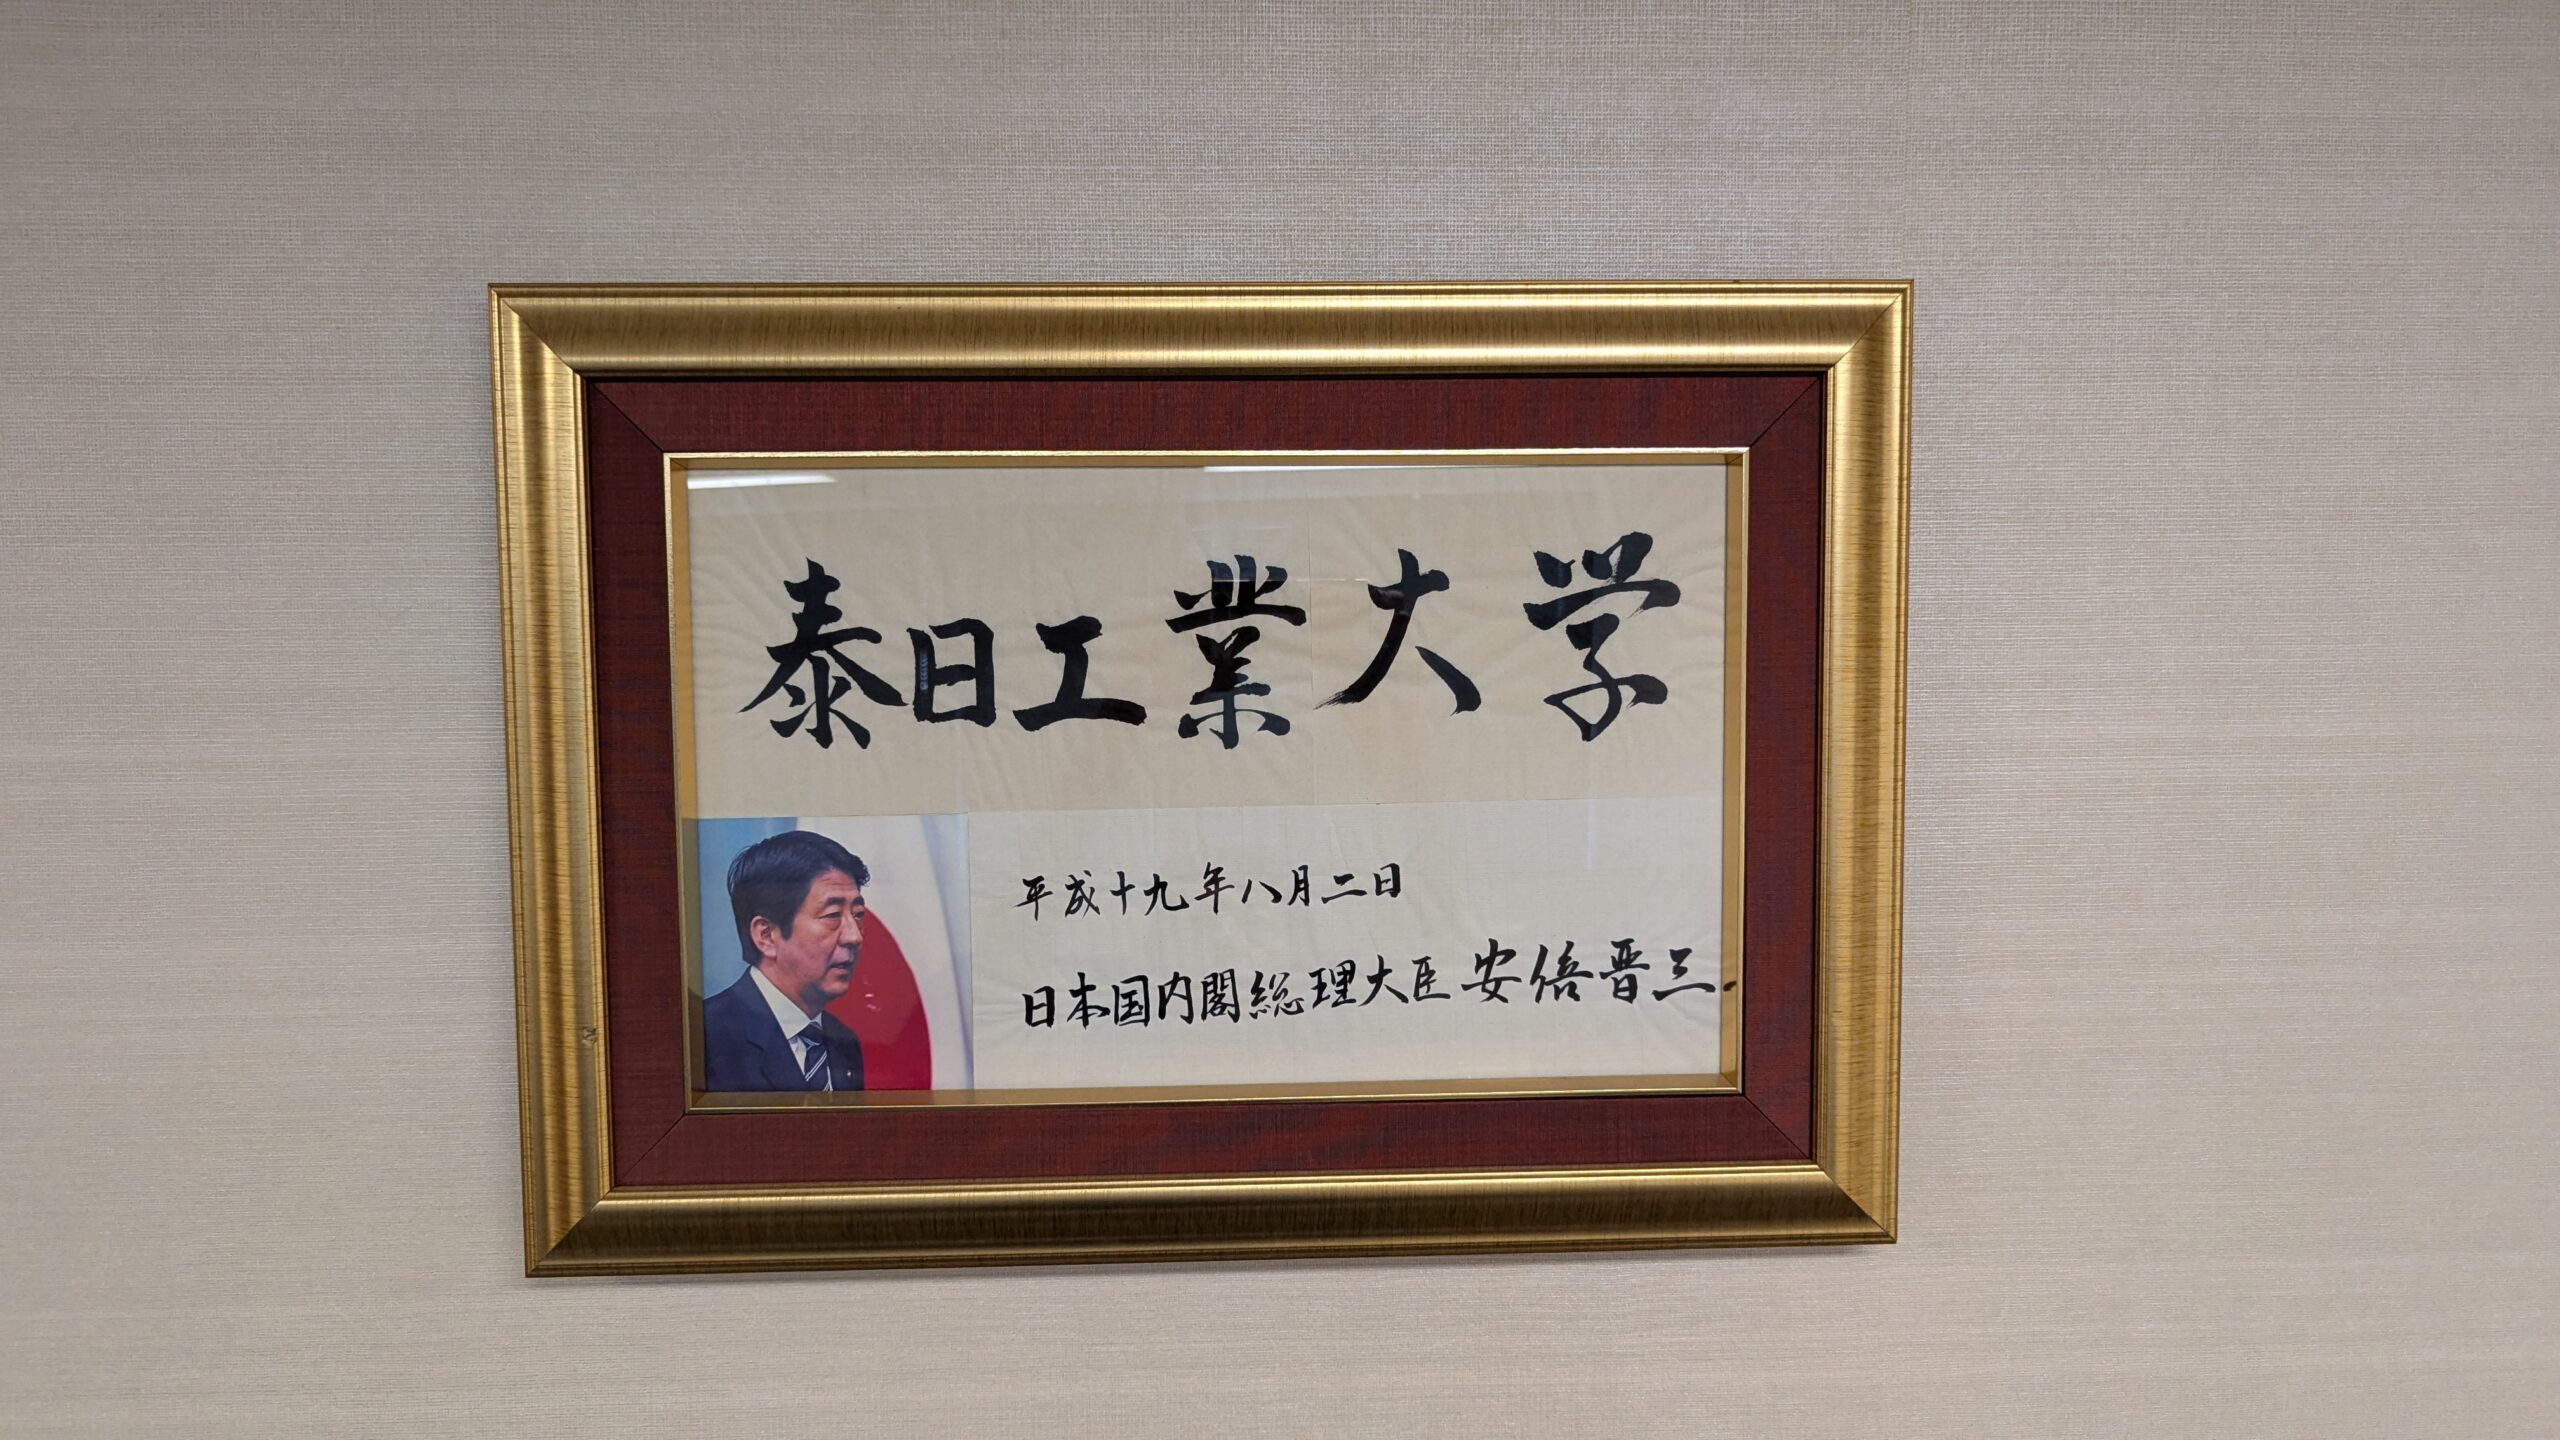 泰日工業大学
平成十九年八月二日
日本国内閣総理大臣安倍晋三